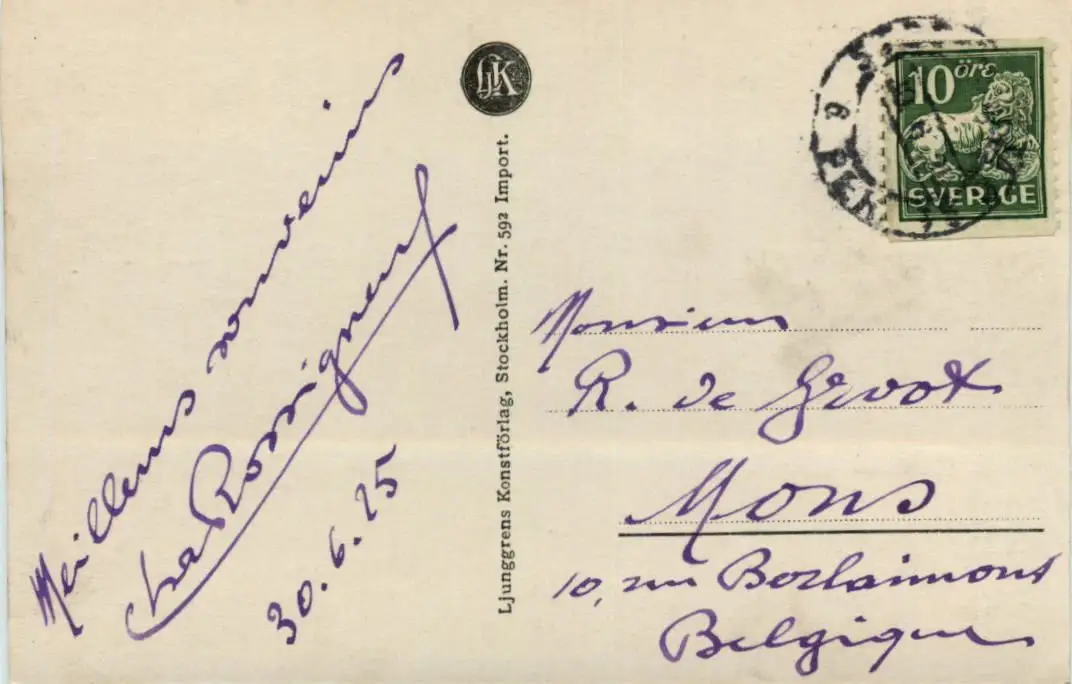 Meilleurs souvenirs
Cha Rossigneux
30.6.25
LJK
Ljunggrens Konstförlag, Stockholm. Nr. 592 Import.
10 öre
SVERIGE
6
Monsieur
R. de Groot
Mons
10, rue Berlaimont
Belgique